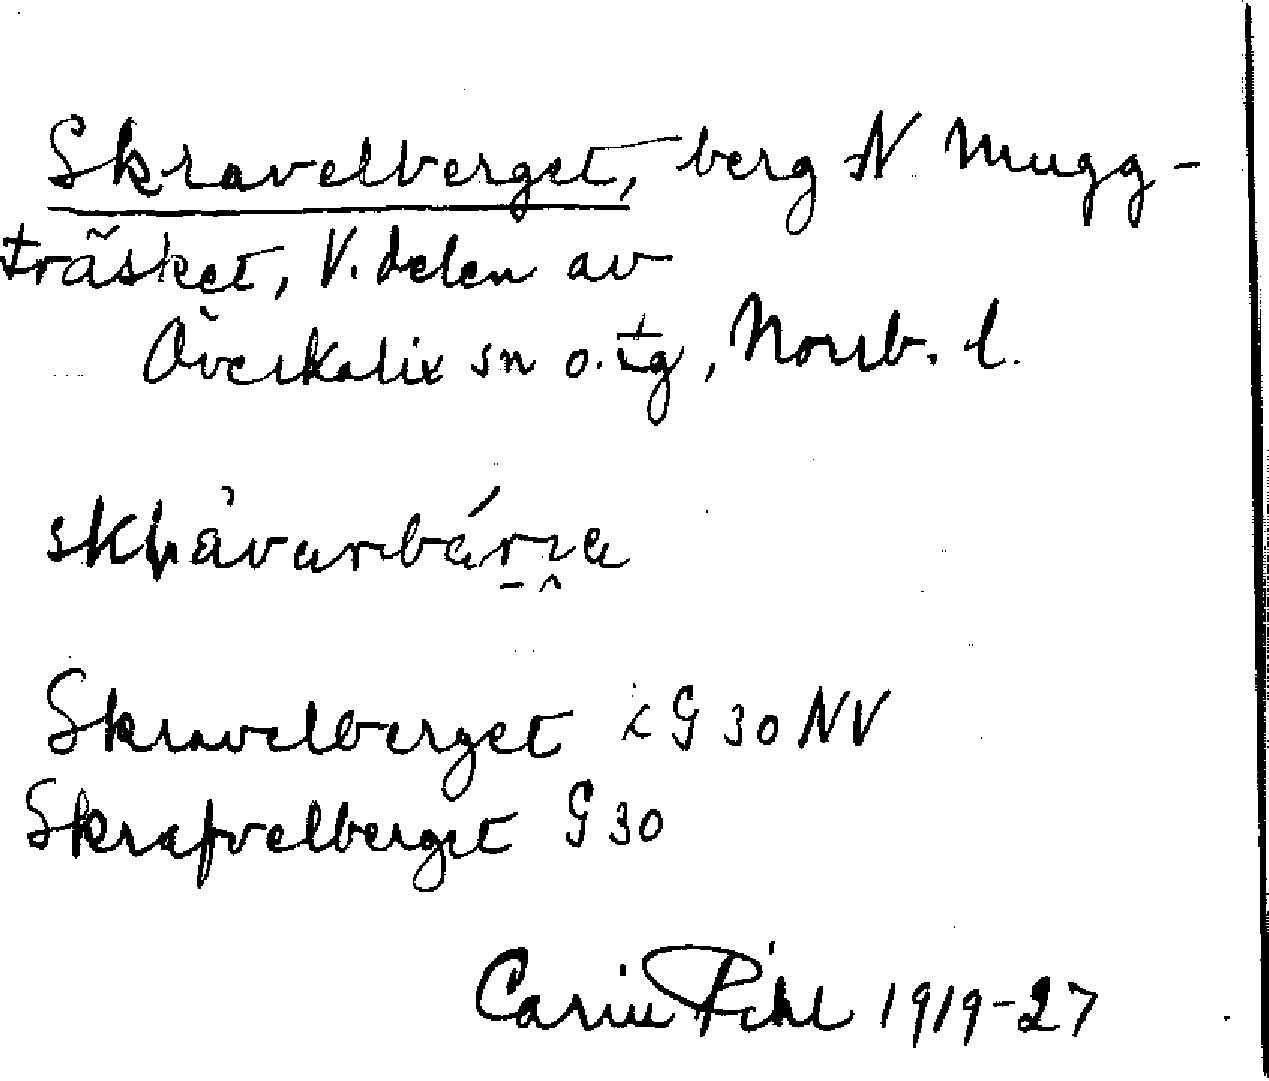 Skravelberget, berg N Mugg-
träsket, V. delen av
Överkalix sn o. tg, Norrb. l.
Skravelberget i G 30 NV
Skrafvelberget G 30
Carin Pihl 1919-27